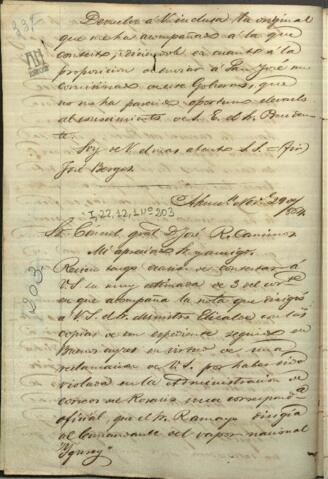 Devuelvo a V. inclusa la original
que me ha acompañado a la que
contesto, diciendole en cuanto a la
proposicion de enviar á San José un
Comisionado de este Gobierno, que
no me ha parecido oportuno elevarlo
al conocimiento de S. E. el Sr. Presiden
te.
Soy de V. el mas atento S. S. Afmo
José Berges
I, 22, 12, 1 Nº 203
Sr. Consul gral. D. José R. Caminos
Mi apreciado Sr. y amigo.
Recien tengo ocasion de contestar á
VS. su muy estimada de 3 del corrte
en que acompaña la nota que dirigió
a V.S. el Sr. Ministro Elizalde con las
copias de un espediente seguido en
Buenos Ayres en virtud de una
reclamacion de V.S. por haber sido
violada en la Administracion de
correos del Rosario una correspondª
oficial, que el Sr. Ramayo dirigia
al Comandante del vapor nacional
"Ygurey"
203